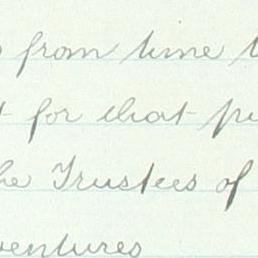 from time
for that
The Trustees of
ventures